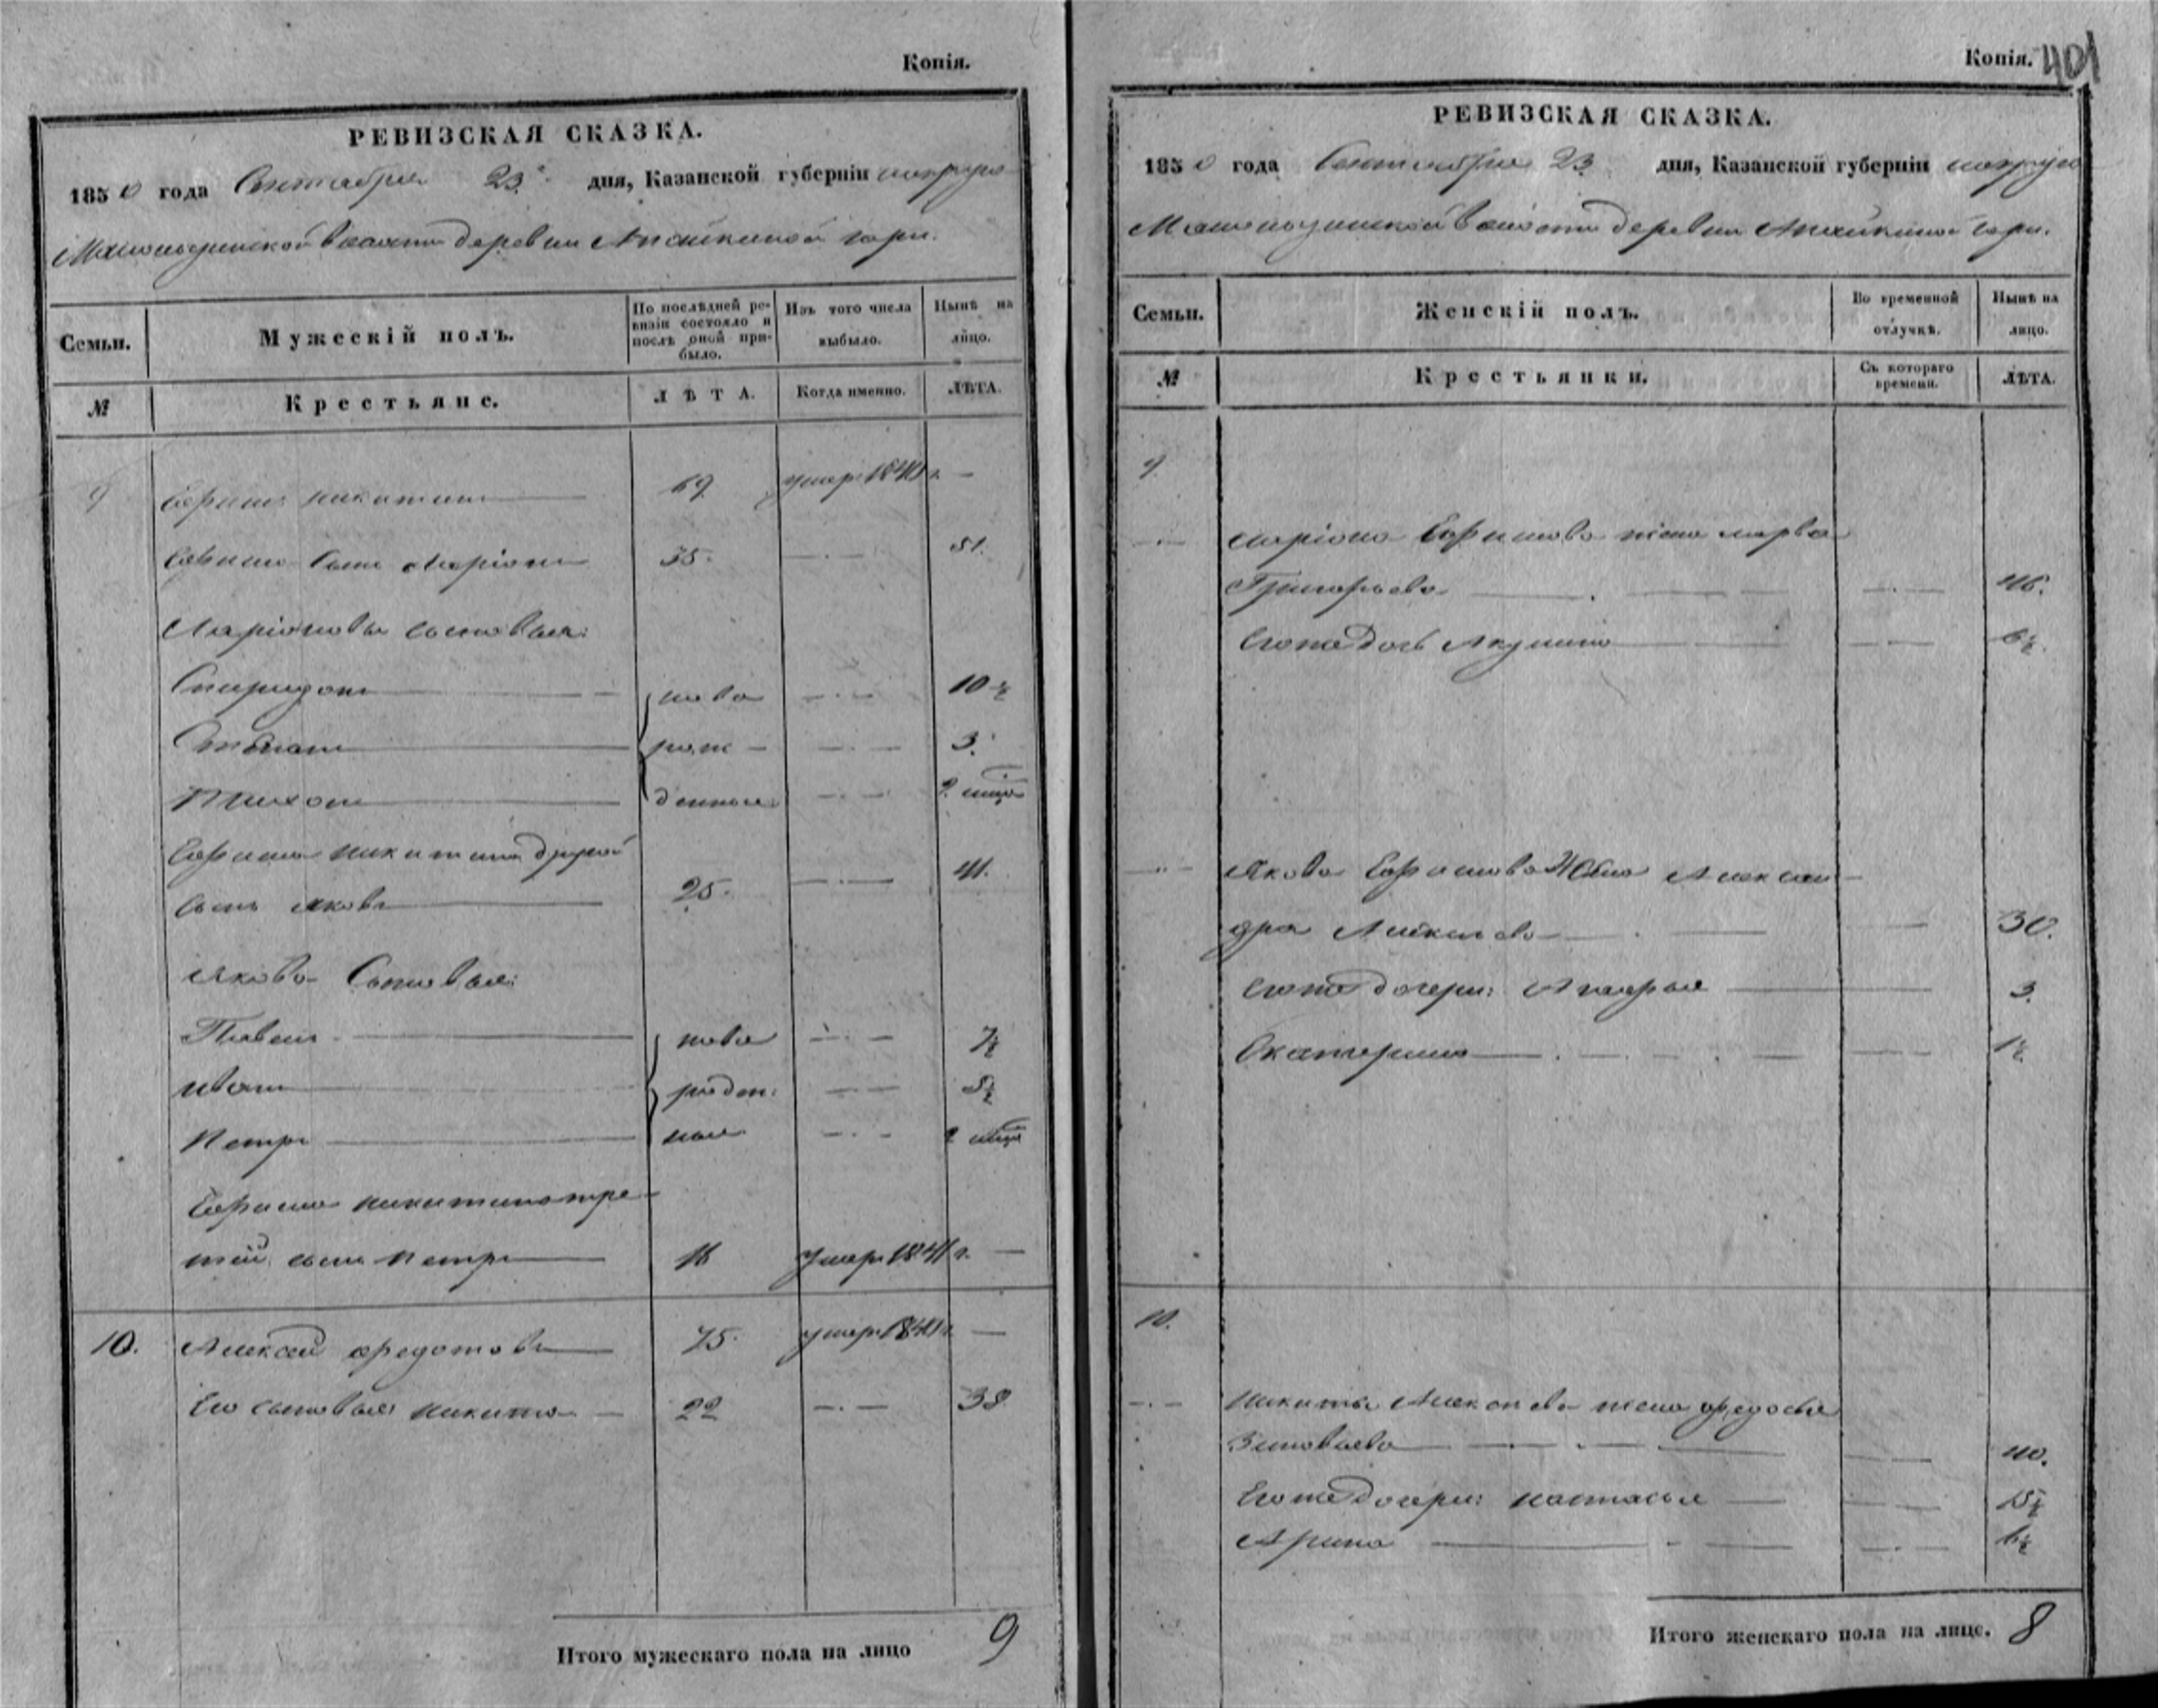 Копія.
РЕВИЗСКАЯ СКАЗКА.
1850 года Сентября 23 дня, Казанской губерніи
волости деревни гари.
Семьи.
Мужескій полъ.
По послѣдней ревизіи состояло и послѣ оной прибыло.
Изъ того числа выбыло.
Нынѣ на лицо.
№
Крестьяне.
ЛѢТА.
Когда именно.
ЛѢТА.
9
Ефимъ Никитинъ 69 умеръ 1840 г. —
Ефима сынъ Ларіонъ 35. — 51.
Ларіоновы сыновья:
Спиридонъ ново 10 ½
Степанъ рож 3.
Тихонъ денные
Ефима Никитина другой
сынъ Яковъ 25. — 41.
Якова Сыновья:
Павелъ ново 7½
Иванъ рожден 5½
Петръ ные
Ефима Никитина тре
тій сынъ Петръ 16 умеръ 1841 г. —
10. Алексей Федотовъ 75. умеръ 1840 г. —
Его сыновья Никита 22 — 38
Итого мужескаго пола на лицо 9
Копія. 401
РЕВИЗСКАЯ СКАЗКА.
1850 года Сентября 23 дня, Казанской губерніи
волости деревни гари.
Семьи.
Женскій полъ.
Во временной отлучкѣ.
Нынѣ на лицо.
№
Крестьянки.
Съ котораго времени.
ЛѢТА.
9.
Ларіона Ефимова жена Марфа
Григорьева 46.
Его же дочь Акулина 6½.
Якова Ефимова Жена Алексан
дра Алексѣева 30.
Его же дочери: 3.
Екатерина 1½
10.
Никиты Алексѣева жена Федосья
Зиновьева 40.
Его же дочери: Настасья 15½
Арина 6½
Итого женскаго пола на лице. 8